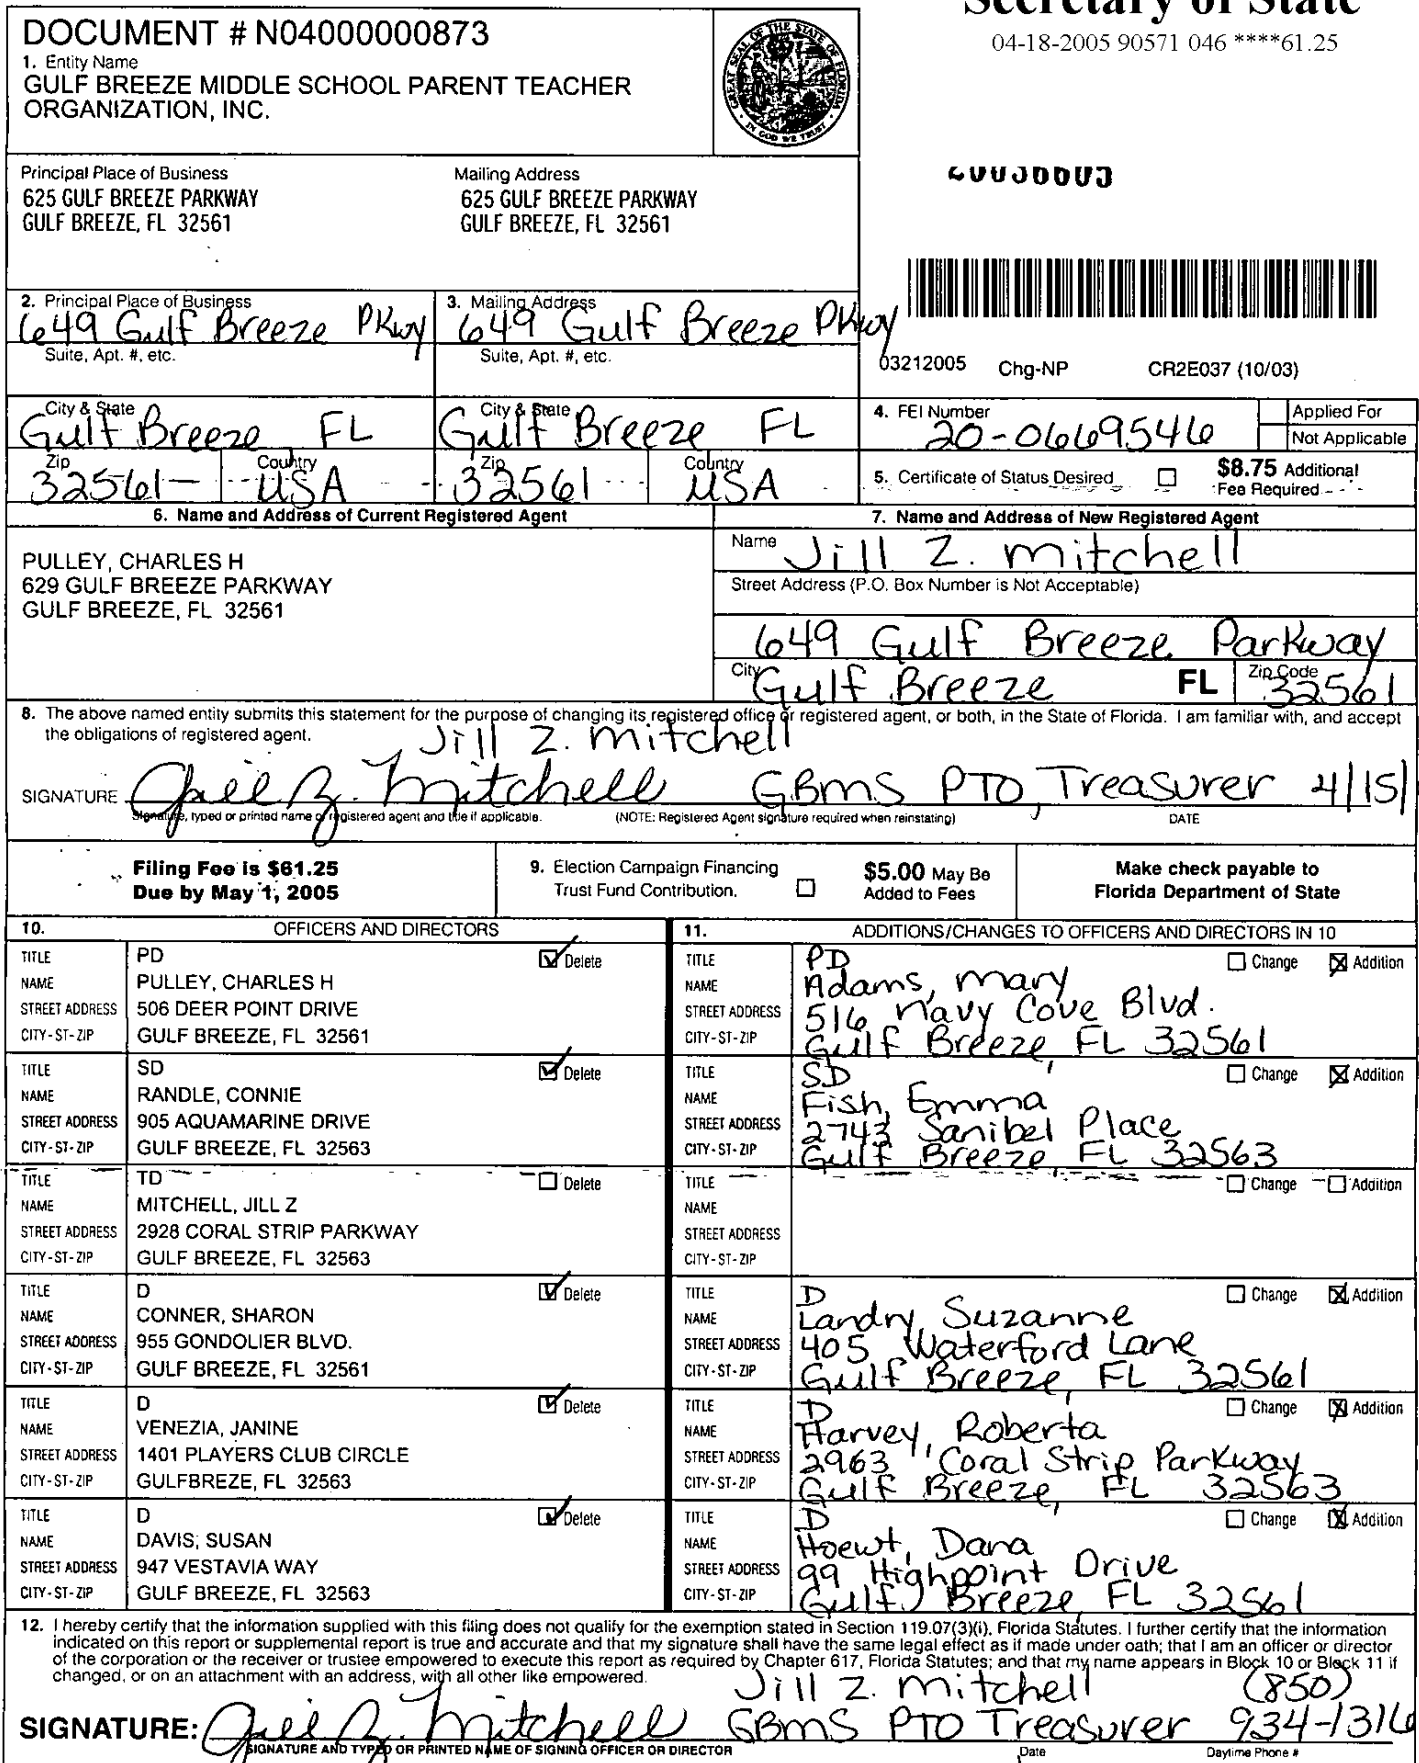 Secretary of State
04-18-2005 90571 046 ****61.25
DOCUMENT # N04000000873
1. Entity Name
GULF BREEZE MIDDLE SCHOOL PARENT TEACHER
ORGANIZATION, INC.
GREAT SEAL OF THE STATE OF FLORIDA
IN GOD WE TRUST
Principal Place of Business
625 GULF BREEZE PARKWAY
GULF BREEZE, FL 32561
Mailing Address
625 GULF BREEZE PARKWAY
GULF BREEZE, FL 32561
2. Principal Place of Business
649 Gulf Breeze Pkwy
Suite, Apt. #, etc.
3. Mailing Address
649 Gulf Breeze Pkwy
Suite, Apt. #, etc.
03212005 Chg-NP CR2E037 (10/03)
City & State
Gulf Breeze FL
City & State
Gulf Breeze FL
Zip
32561
Country
USA
Zip
32561
Country
USA
4. FEI Number
20-0669546
Applied For
Not Applicable
5. Certificate of Status Desired
$8.75 Additional
Fee Required
6. Name and Address of Current Registered Agent
PULLEY, CHARLES H
629 GULF BREEZE PARKWAY
GULF BREEZE, FL 32561
7. Name and Address of New Registered Agent
Name Jill Z. Mitchell
Street Address (P.O. Box Number is Not Acceptable)
649 Gulf Breeze Parkway
City Gulf Breeze FL Zip Code 32561
8. The above named entity submits this statement for the purpose of changing its registered office or registered agent, or both, in the State of Florida. I am familiar with, and accept
the obligations of registered agent.
Jill Z. Mitchell
SIGNATURE Jill Z. Mitchell GBMS PTO, Treasurer 4/15/
Signature, typed or printed name of registered agent and title if applicable. (NOTE: Registered Agent signature required when reinstating) DATE
Filing Fee is $61.25
Due by May 1, 2005
9. Election Campaign Financing
Trust Fund Contribution.
$5.00 May Be
Added to Fees
Make check payable to
Florida Department of State
10. OFFICERS AND DIRECTORS
TITLE PD Delete
NAME PULLEY, CHARLES H
STREET ADDRESS 506 DEER POINT DRIVE
CITY-ST-ZIP GULF BREEZE, FL 32561
TITLE SD Delete
NAME RANDLE, CONNIE
STREET ADDRESS 905 AQUAMARINE DRIVE
CITY-ST-ZIP GULF BREEZE, FL 32563
TITLE TD Delete
NAME MITCHELL, JILL Z
STREET ADDRESS 2928 CORAL STRIP PARKWAY
CITY-ST-ZIP GULF BREEZE, FL 32563
TITLE D Delete
NAME CONNER, SHARON
STREET ADDRESS 955 GONDOLIER BLVD.
CITY-ST-ZIP GULF BREEZE, FL 32561
TITLE D Delete
NAME VENEZIA, JANINE
STREET ADDRESS 1401 PLAYERS CLUB CIRCLE
CITY-ST-ZIP GULFBREZE, FL 32563
TITLE D Delete
NAME DAVIS, SUSAN
STREET ADDRESS 947 VESTAVIA WAY
CITY-ST-ZIP GULF BREEZE, FL 32563
11. ADDITIONS/CHANGES TO OFFICERS AND DIRECTORS IN 10
TITLE PD Change Addition
NAME Adams, Mary
STREET ADDRESS 516 Navy Cove Blvd.
CITY-ST-ZIP Gulf Breeze, FL 32561
TITLE SD Change Addition
NAME Fish, Emma
STREET ADDRESS 2743 Sanibel Place
CITY-ST-ZIP Gulf Breeze, FL 32563
TITLE Change Addition
NAME
STREET ADDRESS
CITY-ST-ZIP
TITLE D Change Addition
NAME Landry, Suzanne
STREET ADDRESS 405 Waterford Lane
CITY-ST-ZIP Gulf Breeze, FL 32561
TITLE D Change Addition
NAME Harvey, Roberta
STREET ADDRESS 2963 Coral Strip Parkway
CITY-ST-ZIP Gulf Breeze, FL 32563
TITLE D Change Addition
NAME Hoewt, Dana
STREET ADDRESS 99 Highpoint Drive
CITY-ST-ZIP Gulf Breeze, FL 32561
12. I hereby certify that the information supplied with this filing does not qualify for the exemption stated in Section 119.07(3)(i), Florida Statutes. I further certify that the information
indicated on this report or supplemental report is true and accurate and that my signature shall have the same legal effect as if made under oath; that I am an officer or director
of the corporation or the receiver or trustee empowered to execute this report as required by Chapter 617, Florida Statutes; and that my name appears in Block 10 or Block 11 if
changed, or on an attachment with an address, with all other like empowered.
Jill Z. Mitchell (850)
SIGNATURE: Jill Z. Mitchell GBMS PTO Treasurer 934-1316
SIGNATURE AND TYPED OR PRINTED NAME OF SIGNING OFFICER OR DIRECTOR Date Daytime Phone #